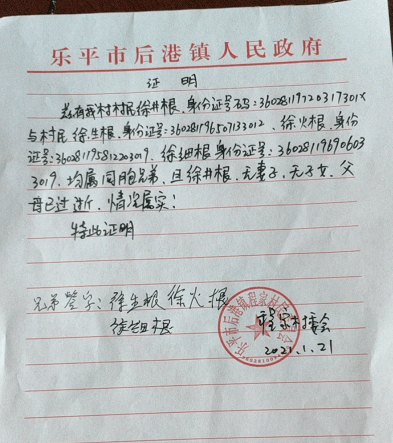 乐平市后港镇人民政府
证 明
兹有我村村民徐井根,身份证号码:36028119720317301X
与村民徐生根,身份证号:360281196507133012、徐火根,身份
证号:360281195812203019、徐细根身份证号:36028119690603
3019,均属同胞兄弟,且徐井根,无妻子,无子女,父
母已过逝,情况属实!
特此证明
兄弟签字:徐生根 徐火根
徐细根
程家村委会
2021.1.21
乐平市后港镇程家村民委员会